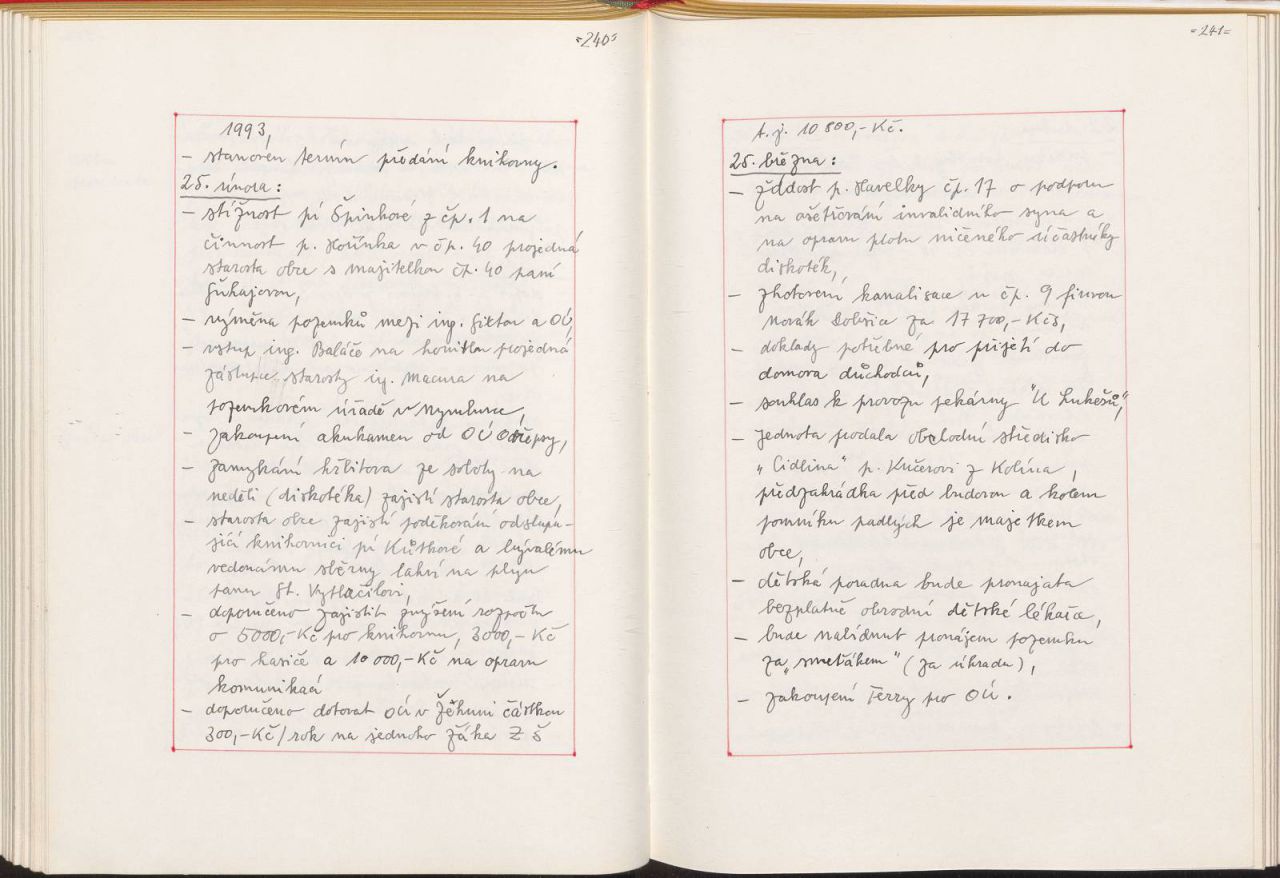 =240=
1993,
- stanoven termín předání knihovny.
25. února:
- stížnost pí Špinkové z čp. 1 na
činnost p. Hořínka v čp. 40 projedná
starosta obce s majitelkou čp. 40 paní
Šuhajovou,
- výměna pozemků mezi ing. Fiktou a OÚ,
- vstup ing. Baláče na honitbu projedná
zástupce starosty ing. Macura na
pozemkovém úřadě v Nymburce,
- zakoupení akukamen od OÚ Odřepsy,
- zamykání hřbitova ze soboty na
neděli (diskotéka) zajistí starosta obce,
- starosta obce zajistí poděkování odstupu-
jící knihovnici pí Kůtkové a bývalému
vedoucímu sběrny lahví na plyn
panu St. Vytlačilovi,
- doporučeno zajistit zvýšení rozpočtu
o 5000,- Kč pro knihovnu, 3000,- Kč
pro hasiče a 10 000,- Kč na opravu
komunikací
- doporučeno dotovat OÚ v Žehuni částkou
300,- Kč/rok na jednoho žáka Z Š
=241=
t. j. 10 800,- Kč.
25. března:
- žádost p. Havelky čp. 17 o podporu
na ošetřování invalidního syna a
na opravu plotu ničeného účastníky
diskoték,
- zhotovení kanalisace u čp. 9 firmou
Novák Dobšice za 17 700,- Kčs,
- doklady potřebné pro přijetí do
domova důchodců,
- souhlas k provozu pekárny "U Lukešů",
- Jednota prodala obchodní středisko
„Cidlina" p. Kučerovi z Kolína,
předzahrádka před budovou a kolem
pomníku padlých je majetkem
obce,
- dětská poradna bude pronajata
bezplatně obvodní dětské lékařce,
- bude nabídnut pronájem pozemku
za „smeťákem" (za úhradu),
- zakoupení Ferry pro OÚ.